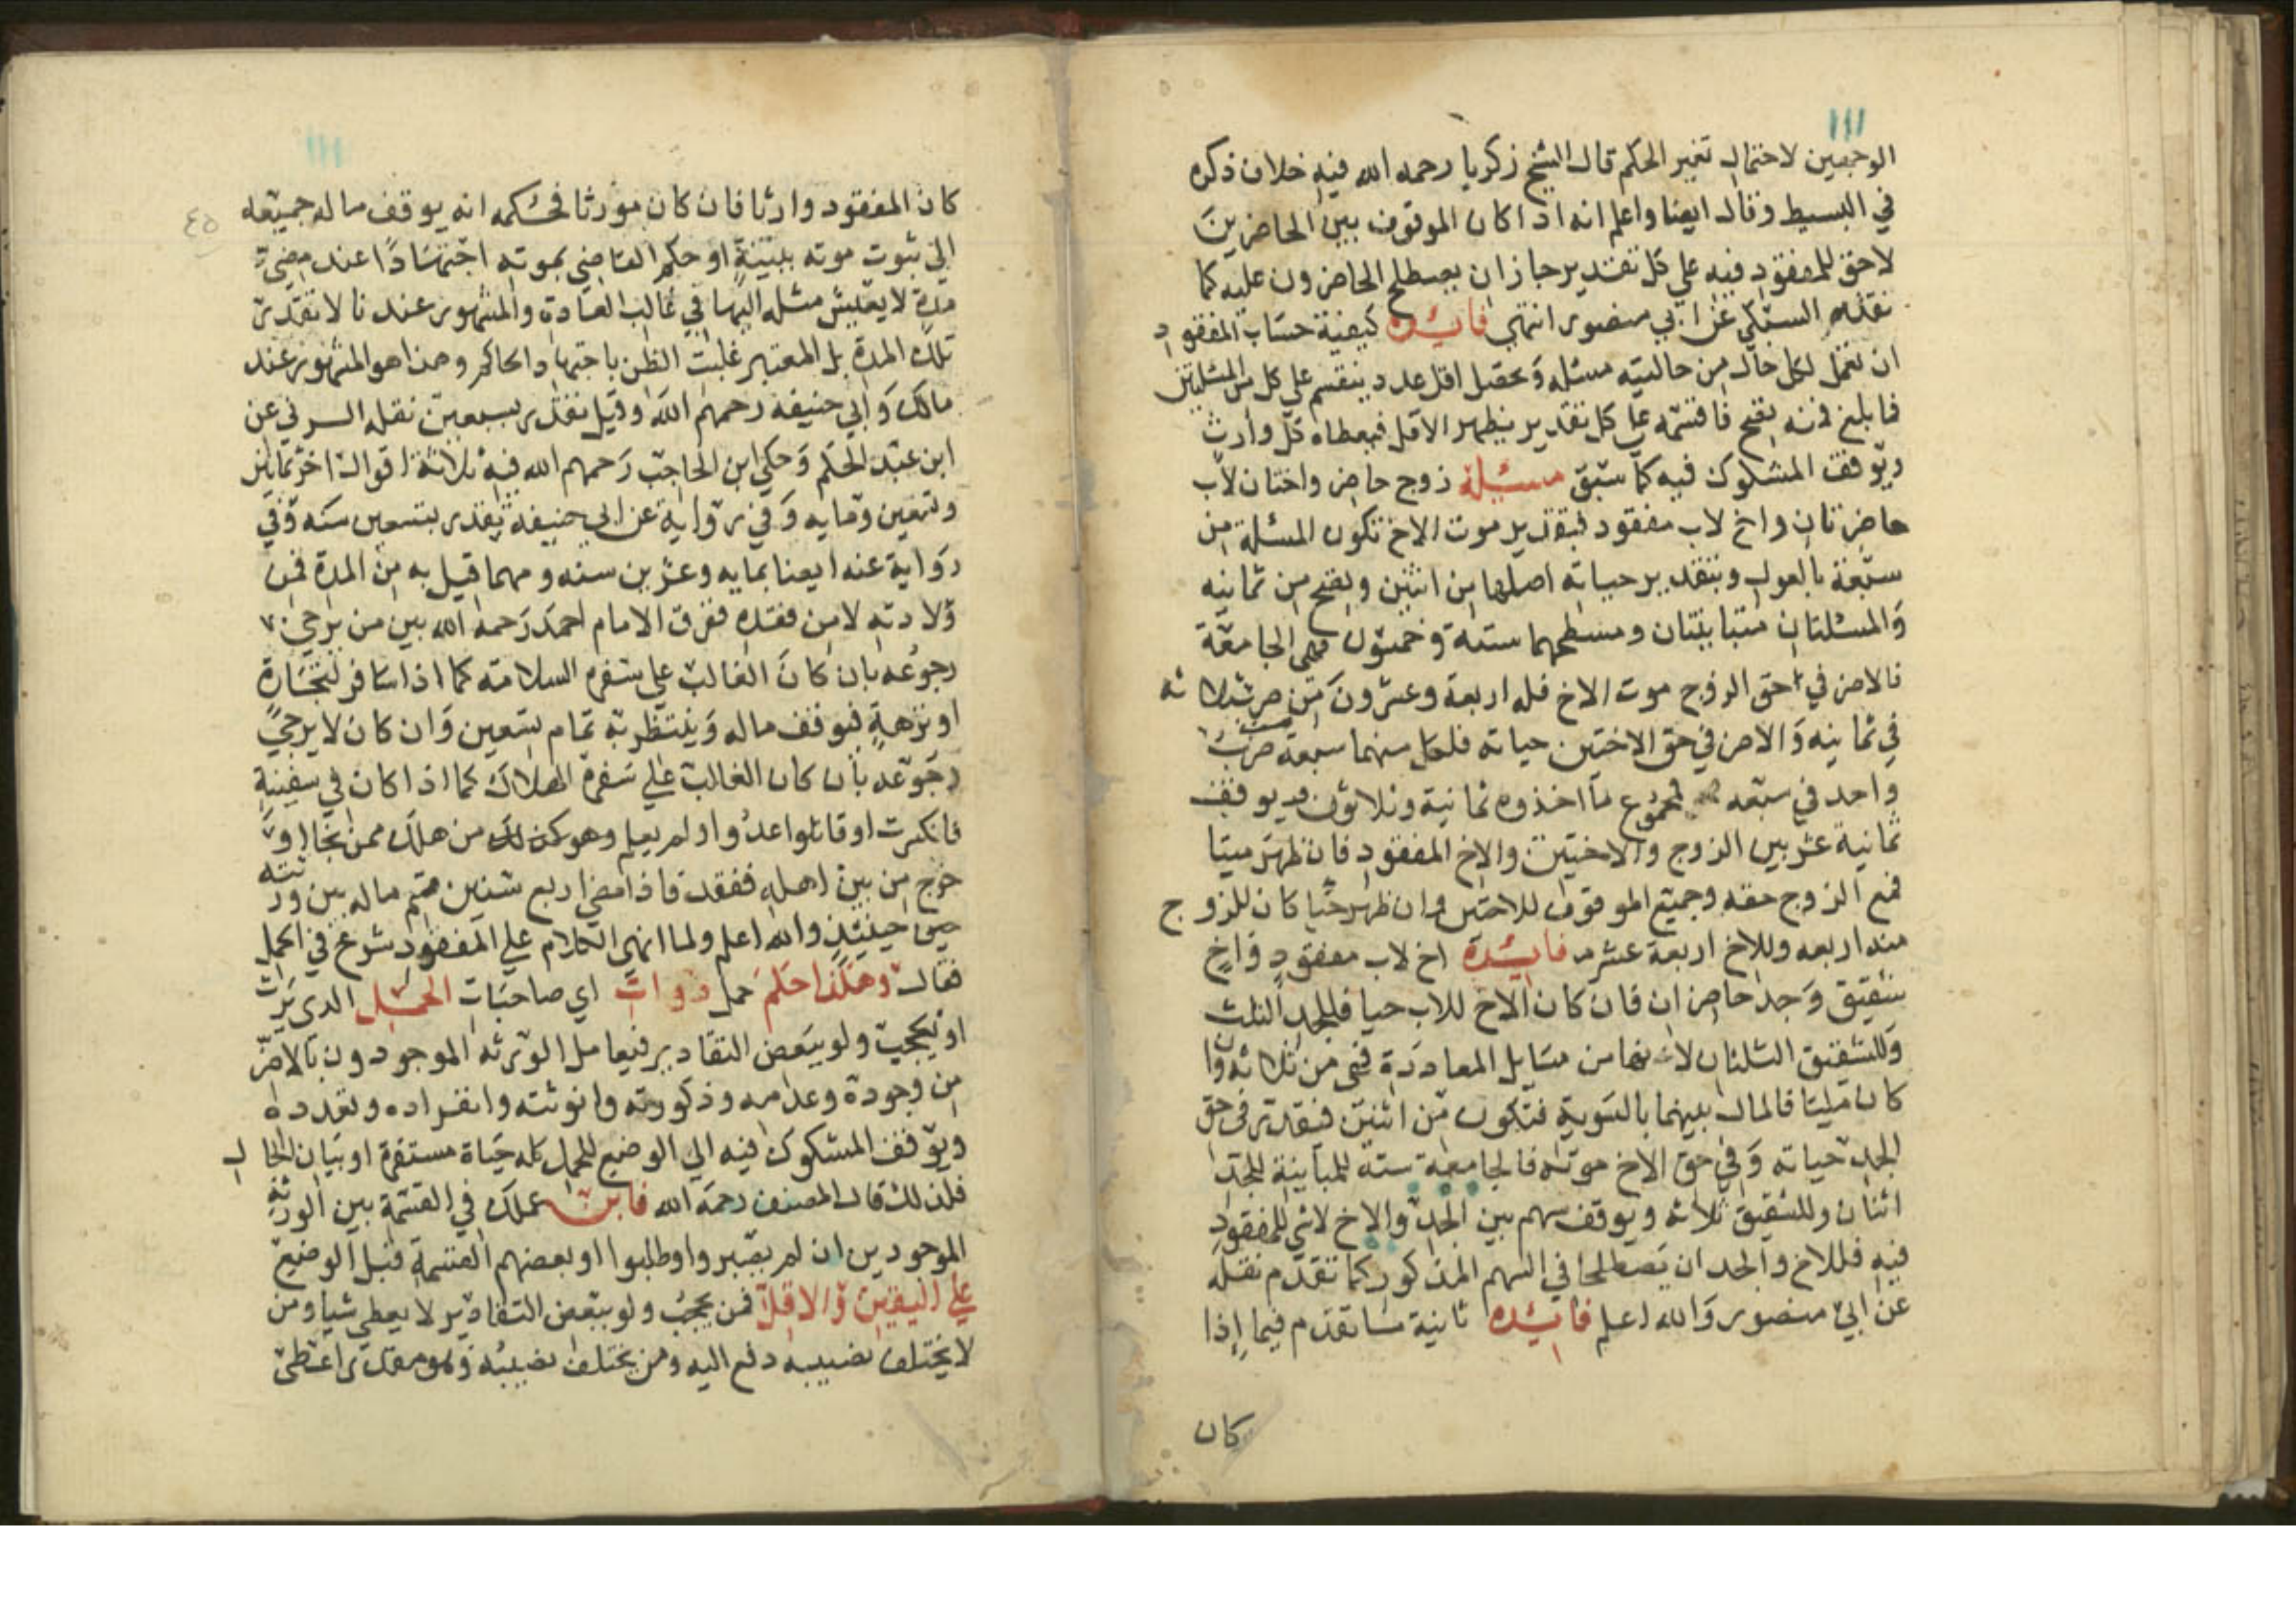 ١١١
الوجهين لاحتمال تغير الحكم قال الشيخ زكريا رحمه الله فيه خلاف ذكره
في البسيط وقال ايضا واعلم انه اذا كان الموقوف بين الحاضرين
لا حق للمفقود فيه علي كل تقدير جاز ان يصطلح الحاضرون عليه كما
نقله السبكي عن ابي منصور انتهي فائده كيفية حساب المفقود
ان تعمل لكل حال من حالتيه مسئله وتحصل اقل عدد ينقسم علي كل من المسئلتين
فما بلغ فمنه تصح فاقسمه علي كل تقدير يظهر الاقل فيعطاه كل وارث
ويوقف المشكوك فيه كما سبق مسئلة زوج حاضر واختان لاب
حاضرتان واخ لاب مفقود فبتقدير موت الاخ تكون المسئلة من
سبعة بالعول وبتقدير حياته اصلها من اثنين وتصح من ثمانيه
والمسئلتان متباينتان ومسطحهما ستة وخمسون فهي الجامعة
فالاضر في حق الزوج موت الاخ فله اربعة وعشرون من ضرب ثلاثه
في ثمانيه والاضر في حق الاختين حياته فلكل منهما سبعة من ضرب
واحد في سبعه فمجموع ما اخذوه ثمانية وثلاثون ويوقف
ثمانية عشر بين الزوج والاختين والاخ المفقود فان ظهر ميتا
فمع الزوج حقه وجميع الموقوف للاختين وان ظهر حيا كان للزوج
منه اربعه وللاخ اربعة عشر فائدة اخ لاب مفقود واخ
شقيق وجد حاضران فان كان الاخ للاب حيا فللجد الثلث
وللشقيق الثلثان لانها من مسايل المعاددة فهي من ثلاثه وان
كان ميتا فالمال بينهما بالسوية فتكون من اثنين فنقدر في حق
الجد حياته وفي حق الاخ موته فالجامعة ستة للمباينة للجد
اثنان وللشقيق ثلاثه ويوقف سهم بين الجد والاخ لا شي للمفقود
فيه فللاخ والجد ان يصطلحا في السهم المذكور كما تقدم نقله
عن ابي منصور والله اعلم فائده ثانية ما تقدم فيما إذا
كان
كان المفقود وارثا فان كان مورثا فحكمه انه يوقف ماله جميعه
٤٥
الي ثبوت موته ببينة او حكم القاضي بموته اجتهادًا عند مضي
مدة لا يعيش مثله اليها في غالب العادة والمشهور عندنا لا تقدير
تلك المدة بل المعتبر غلبت الظن باجتهاد الحاكم وهذا هو المشهور عند
مالك وابي حنيفه رحمهم الله وقيل تقدر بسبعين نقله السرفي عن
ابن عبد الحكم وحكي ابن الحاجب رحمهم الله فيه ثلاثة اقوال اخر ثمانين
وتسعين ومايه وفي رواية عن ابي حنيفة يقدر بتسعين سنه وفي
رواية عنه ايضا بمايه وعشرين سنه ومهما قيل به من المدة فمن
ولادته لا من فقده ففرق الامام احمد رحمه الله بين من يرجي
رجوعه بان كان الغالب علي سفره السلامه كما اذا سافر لتجارة
او نزهة فيوقف ماله وينتظر به تمام تسعين وان كان لا يرجي
رجوعه بان كان الغالب علي سفره الهلاك كما اذا كان في سفينة
فانكسرت او قاتلوا عدُوا ولم يعلم وهو كمن هلك ممن نجا او
خرج من بين اهله ففقد فاذا مضي اربع سنين قسم ماله بين ورثته
حينئذ والله اعلم ولما انهي الكلام علي المفقود شرع في الحمل
فقال وهكذا حكم حمل ذوات اي صاحبات الحمل الذي يرث
او يحجب ولو ببعض التقادير فيعامل الورثه الموجودون بالاضر
من وجوده وعدمه وذكورته وانوثته وانفراده وتعدده
ويوقف المشكوك فيه الي الوضع للحمل كله حياة مستقرة او بيان الحال
فلذلك قال المصنف رحمه الله فابن عملك في القسمة بين الورثة
الموجودين ان لم يصبروا وطلبوا او بعضهم القسمة قبل الوضع
علي اليقين والاقل فمن يحجب ولو ببعض التقادير لا يعطي شيا ومن
لا يختلف نصيبه دفع اليه ومن يختلف نصيبه وهو مقدر اعطي